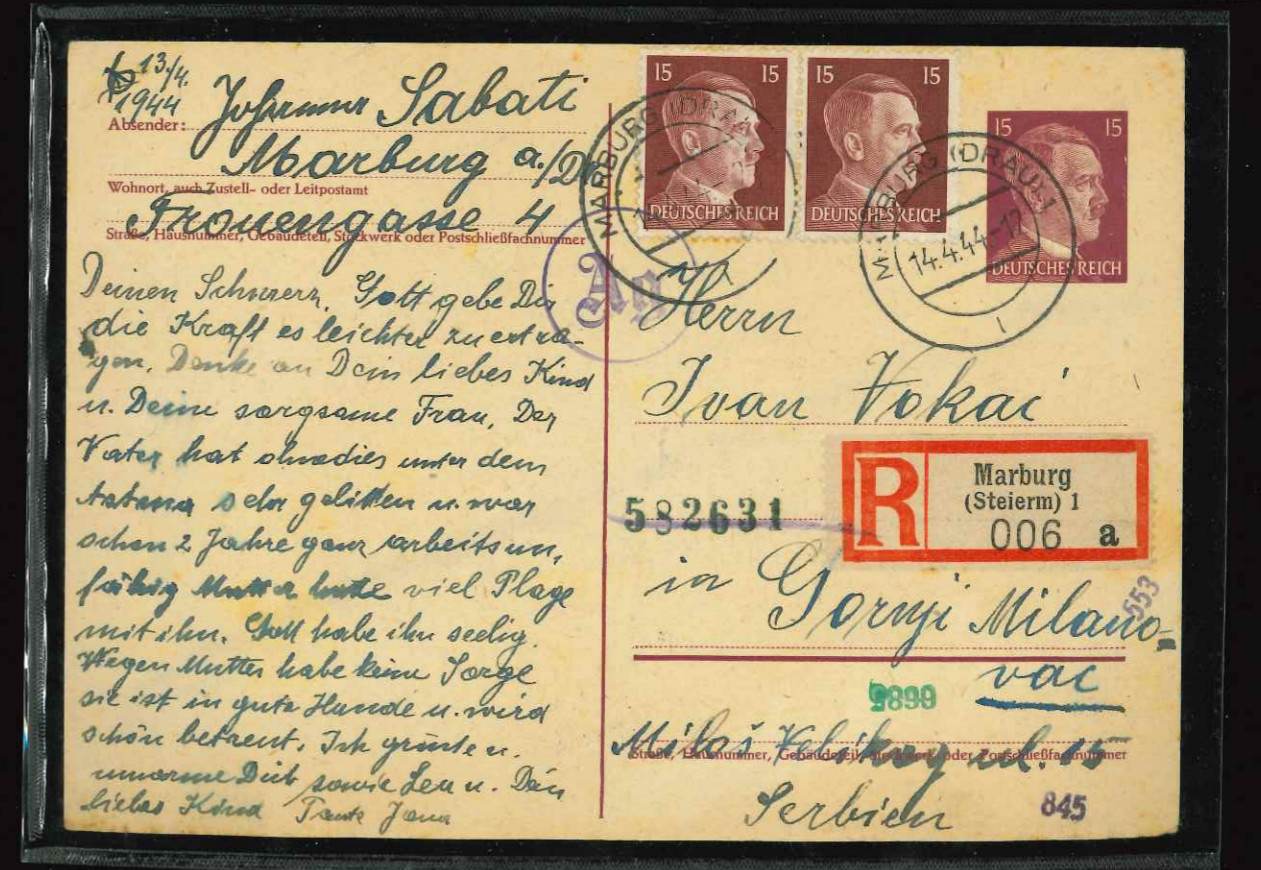 13./4.
1944
Absender: Johanna Sabati
Marburg a./D
Wohnort, auch Zustell- oder Leitpostamt
Frauengasse 4
Straße, Hausnummer, Gebäudeteil, Stockwerk oder Postschließfachnummer
Deinen Schmerz, Gott gebe Dir
die Kraft es leichter zu ertra-
gen. Denke an Dein liebes Kind
u. Deine sorgsame Frau. Der
Vater hat ohnedies unter dem
sehr gelitten u. war
schon 2 Jahre ganz arbeitsun-
fähig Mutter hatte viel Plage
mit ihn. Gott habe ihn seelig.
Wegen Mutter habe keine Sorge
sie ist in gute Hände u. wird
schön betreut. Ich grüße u.
umarme Dich sowie Lea u. Dein
liebes Kind Tante Jana
15 15
DEUTSCHES REICH
15 15
DEUTSCHES REICH
15 15
DEUTSCHES REICH
MARBURG (DRAU)
MARBURG (DRAU) 1
14.4.44-12
Ag
Herrn
Ivan Vokai
582631
R
Marburg
(Steierm) 1
006 a
in Gornji Milano-
vac
553
6685
Miloš
ul. 15
Straße, Hausnummer, Gebäudeteil, Stockwerk oder Postschließfachnummer
Serbien
845